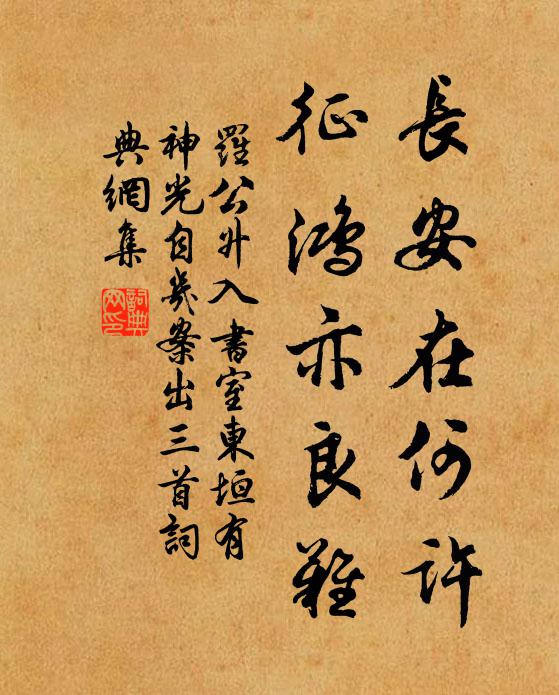 長安在何許
征鴻亦良難
羅公升入書室東垣有
神光自几案出三首詞
典網集
詞典網印